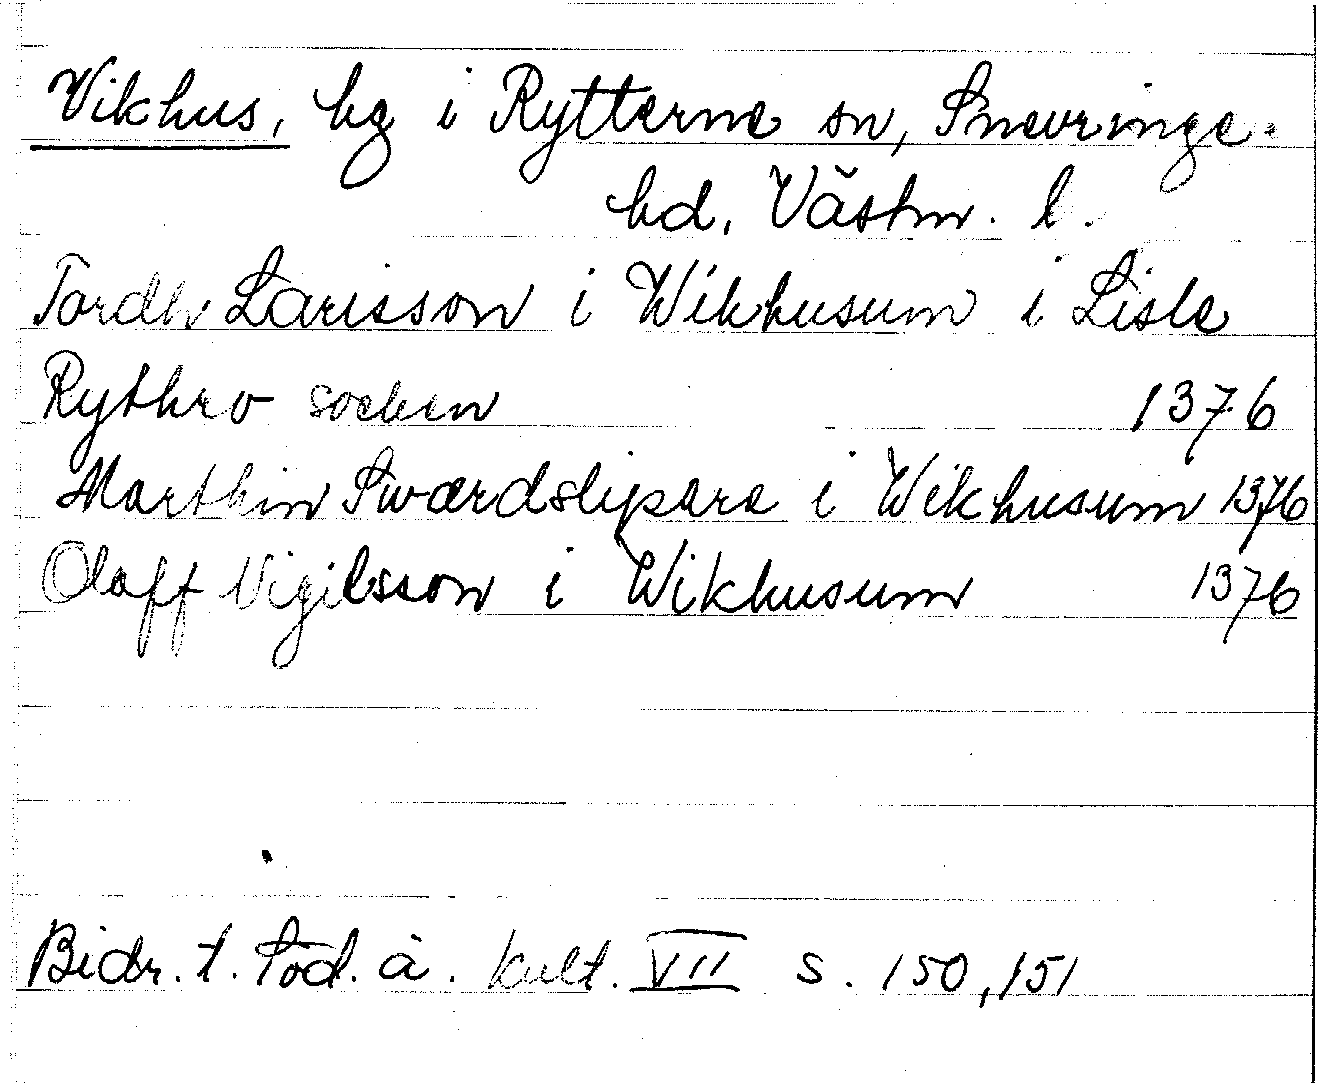 Vikhus, bg i Rytterne sn, Snevringe
hd, Västm. l.
Tordh Larisson i Wikhusum i Lisle
Rythro socken 1376
Marthin Swærdslipare i Wikhusum 1376
Olaff Vigilsson i Wikhusum 1376
Bidr. t. Söd. ä. kult. VII s. 150, 151